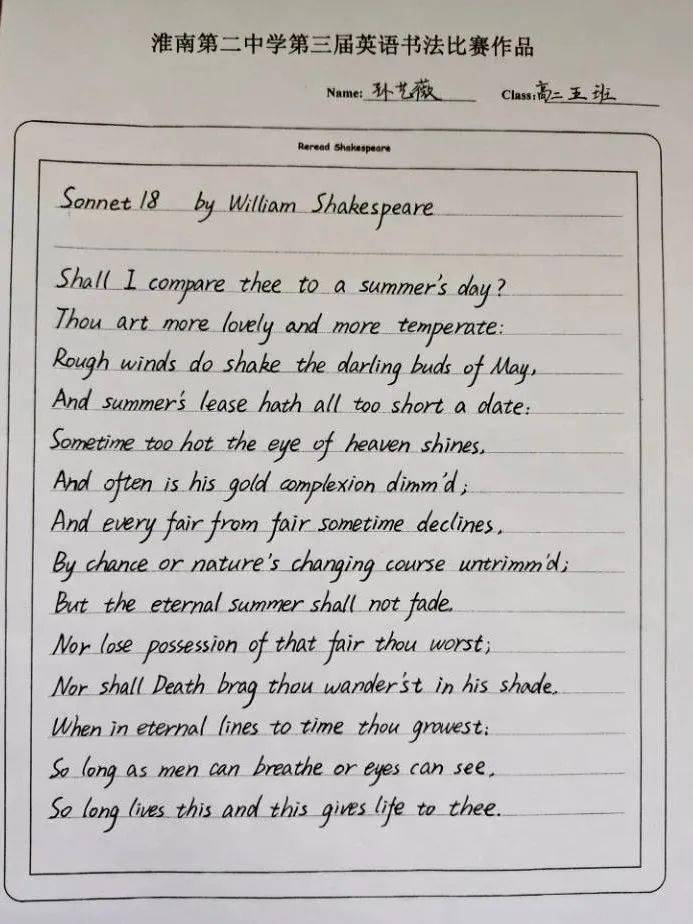 淮南第二中学第三届英语书法比赛作品
Name: 孙艺薇 Class: 高二五班
Reread Shakespeare
Sonnet 18 by William Shakespeare
Shall I compare thee to a summer's day?
Thou art more lovely and more temperate:
Rough winds do shake the darling buds of May,
And summer's lease hath all too short a date:
Sometime too hot the eye of heaven shines,
And often is his gold complexion dimm'd;
And every fair from fair sometime declines,
By chance or nature's changing course untrimm'd;
But the eternal summer shall not fade.
Nor lose possession of that fair thou worst;
Nor shall Death brag thou wander'st in his shade,
When in eternal lines to time thou growest:
So long as men can breathe or eyes can see,
So long lives this and this gives life to thee.